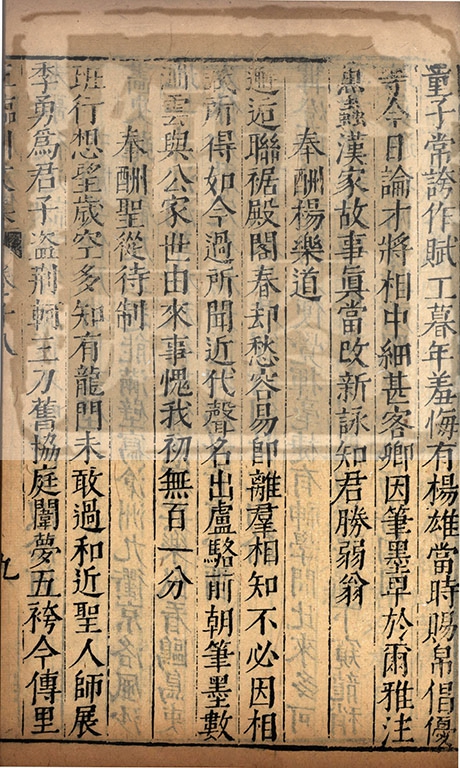 童子常誇作賦工暮年羞悔有楊雄當時賜帛倡優
等今日論才將相中細甚客卿因筆墨卑於爾雅注
魚蟲漢家故事眞當改新詠知君勝弱翁
奉酬楊樂道
邂逅聯裾殿閣春却愁容易即離羣相知不必因相
識所得如今過所聞近代聲名出盧駱前朝筆墨數
淵雲與公家世由來事愧我初無百一分
奉酬聖從待制
班行想望歲空多知有龍門未敢過和近聖人師展
李勇爲君子盜荆軻三刀舊協庭闈夢五袴今傳里
臨川文集 卷十八 九